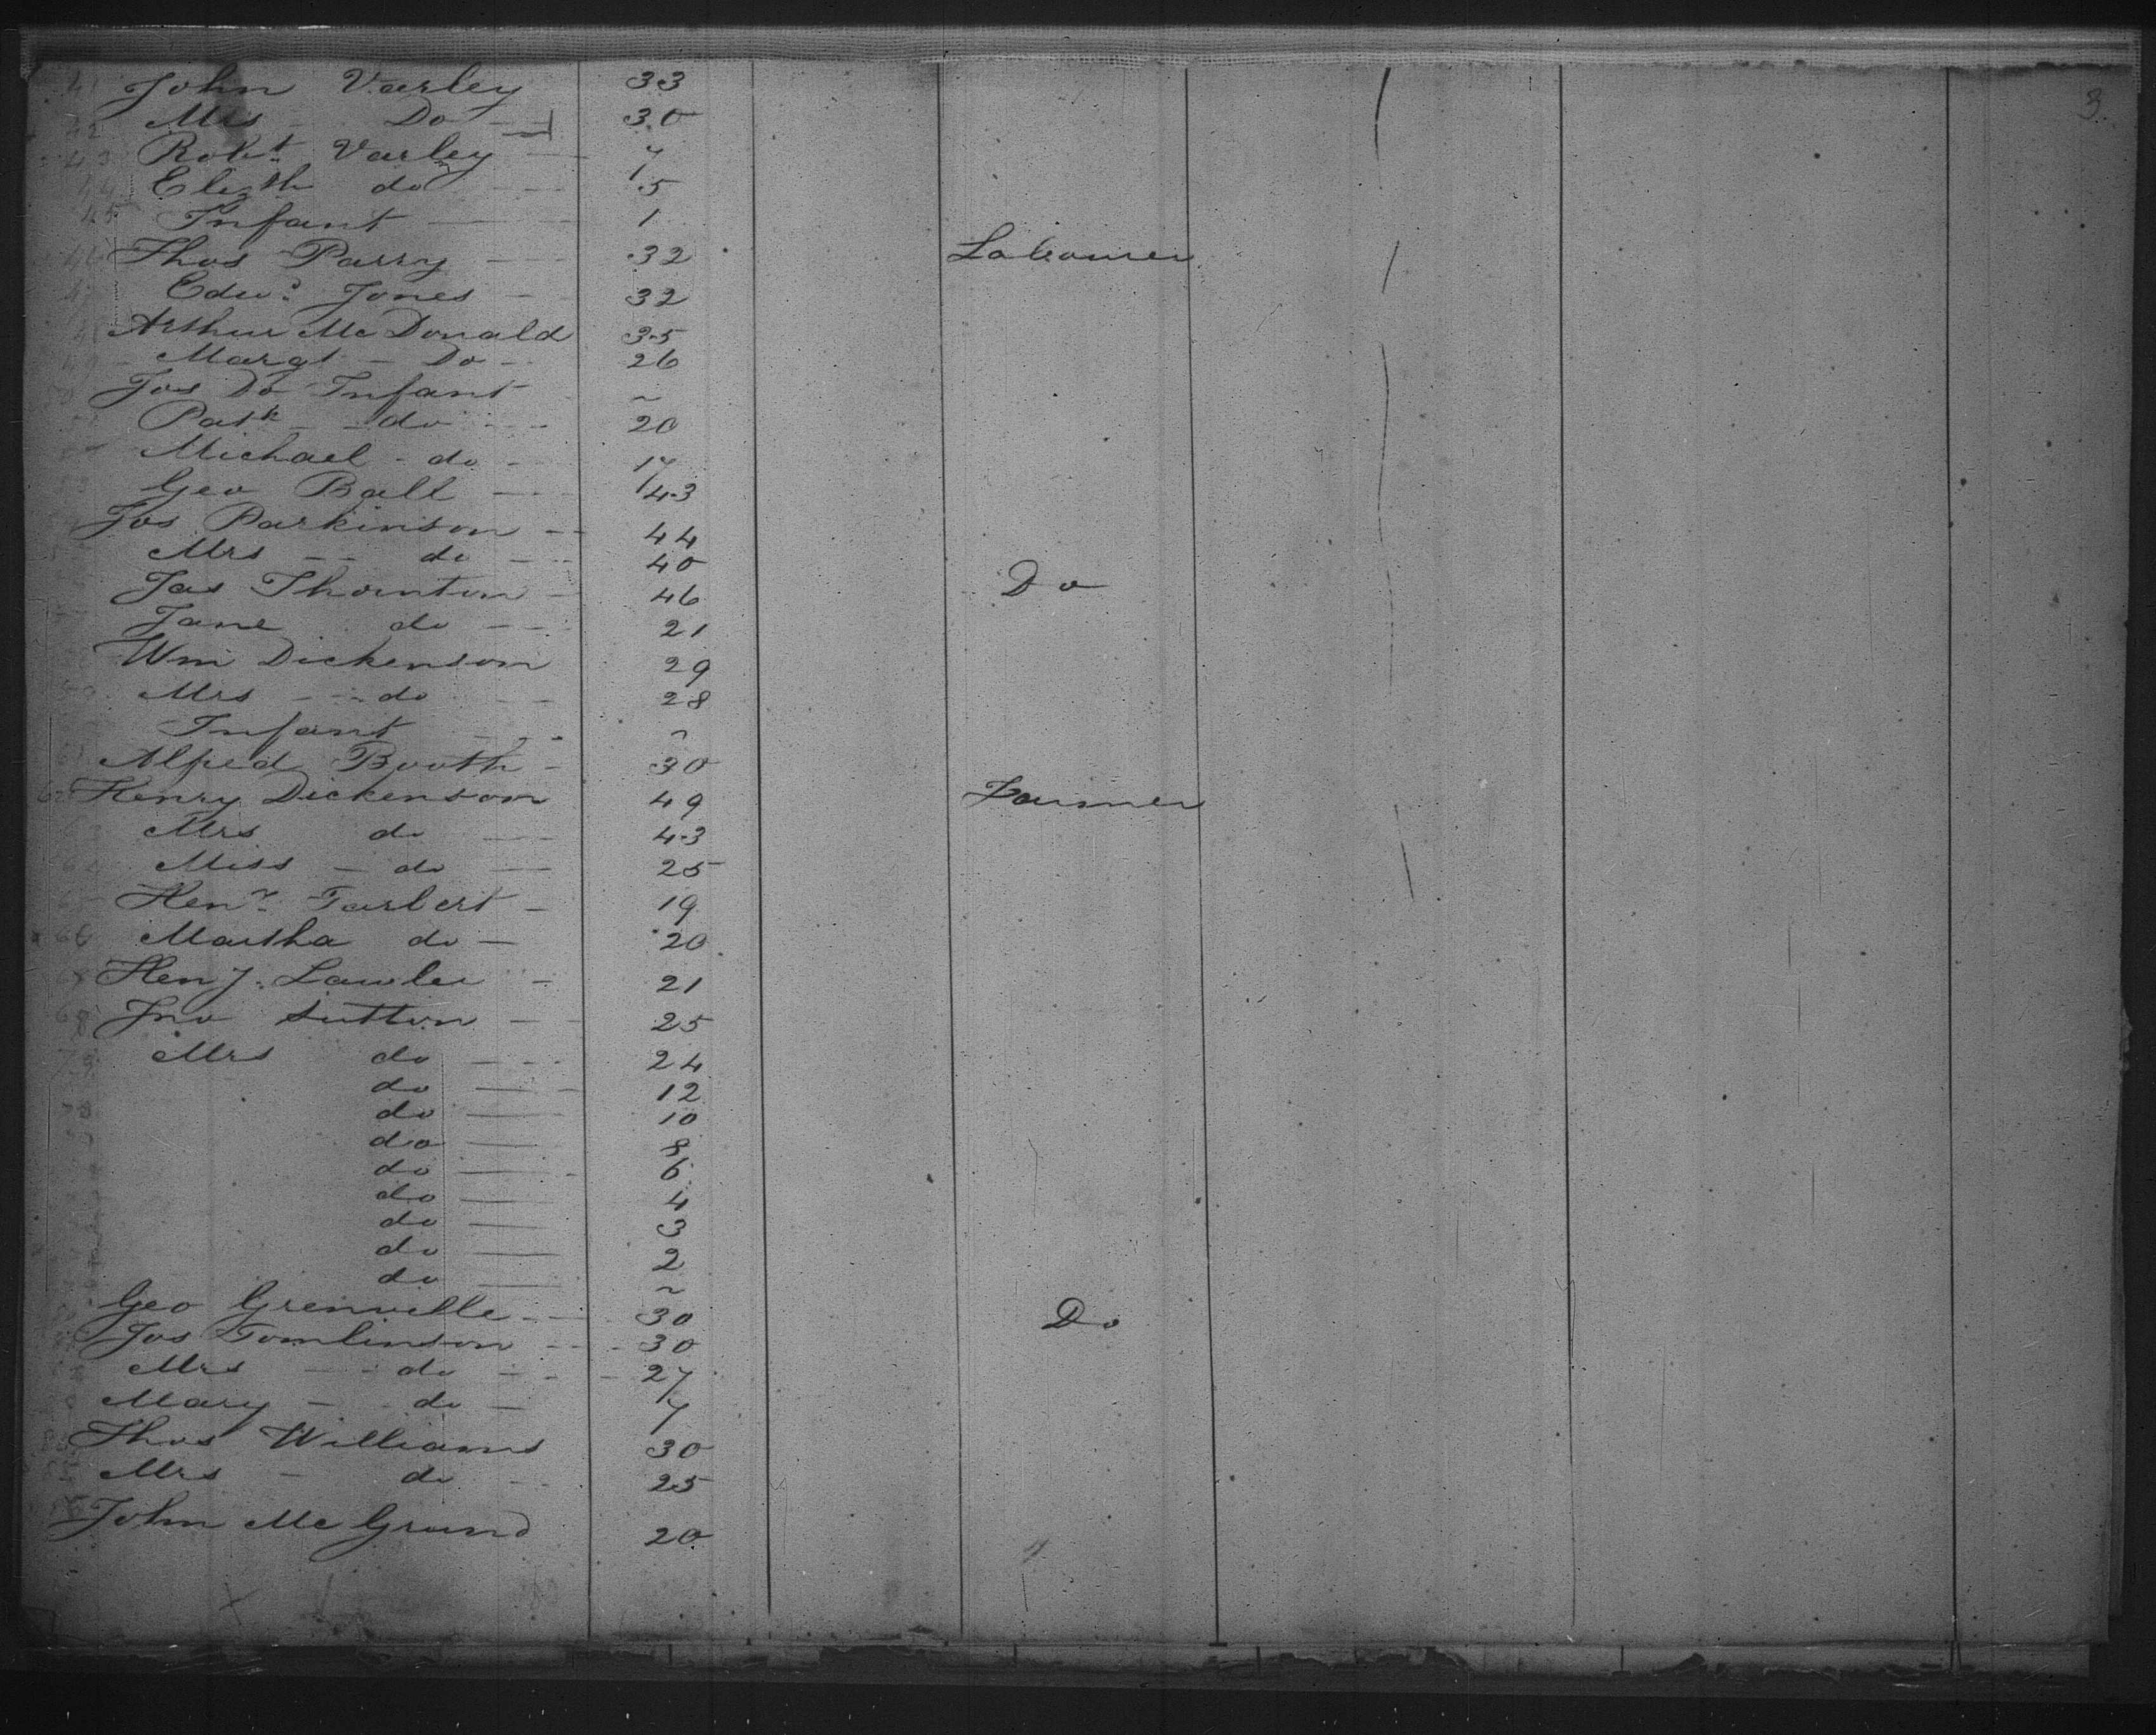 3
41 John Varley 33
42 Mrs Do 30
43 Robt Varley 7
44 Elizth do 5
45 Infant 1
46 Thos Parry 32 Labourer
47 Edwd Jones 32
Arthur McDonald 35
Margt Do 26
50 Jos Do Infant ~
Patk do 20
Michael do 17
Geo Ball 43
Jos Parkinson 44
Mrs do 40
Jas Thornton 46 Do
Jane do 21
Wm Dickenson 29
Mrs do 28
Infant ~
Alfred Booth 30
62 Henry Dickenson 49 Farmer
63 Mrs do 43
64 Miss do 25
Henry Tarbert 19
66 Martha do 20
Heny Lawler 21
Jno Sutton 25
Mrs do 24
do 12
do 10
do 8
do 6
do 4
do 3
do 2
do ~
Geo Grenville 30 Do
Jos Tomlinson 30
Mrs do 27
Mary do 7
Thos Williams 30
Mrs do 25
John 20